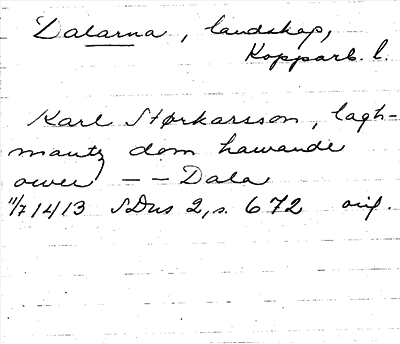 Dalarna, landskap,
Kopparb. l.
Karl Størkarsson, lagh-
mantz dom hawande
ower - - Dala
11/7 1413 SDns 2, s. 672 orig.